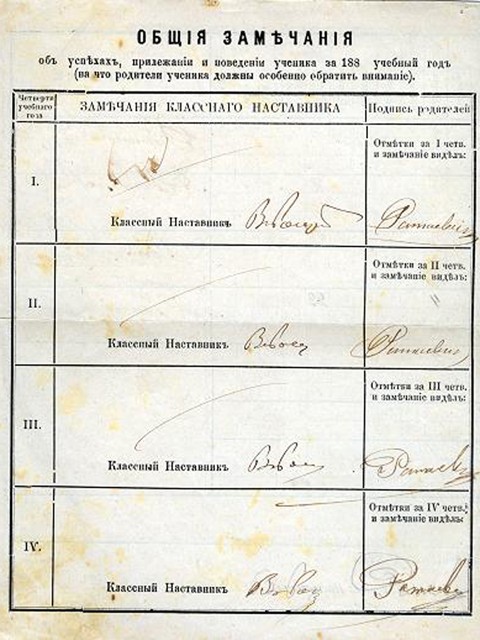 ОБЩІЯ ЗАМѢЧАНІЯ
объ успѣхахъ, прилежаніи и поведеніи ученика за 188 учебный годъ
(на что родители ученика должны особенно обратить вниманіе).
Четверти учебнаго года
ЗАМѢЧАНІЯ КЛАССНАГО НАСТАВНИКА
Подпись родителей
I.
Отмѣтки за I четв.
и замѣчаніе видѣлъ:
Классный Наставникъ
II.
Отмѣтки за II четв.
и замѣчаніе видѣлъ:
Классный Наставникъ
III.
Отмѣтки за III четв.
и замѣчаніе видѣлъ:
Классный Наставникъ
IV.
Отмѣтки за IV четв.
и замѣчаніе видѣлъ:
Классный Наставникъ